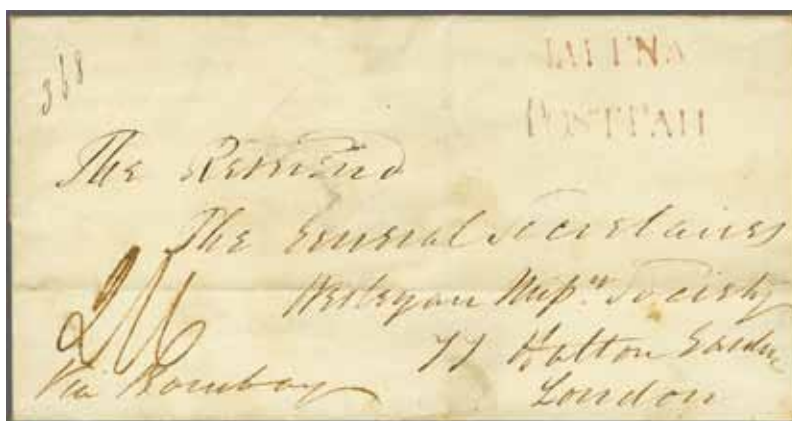 368
JAFFNA
POST PAID
The Reverend
The General Secretaries
Wesleyan Missn Society
77 Hatton Garden
London
2/6
Via Bombay